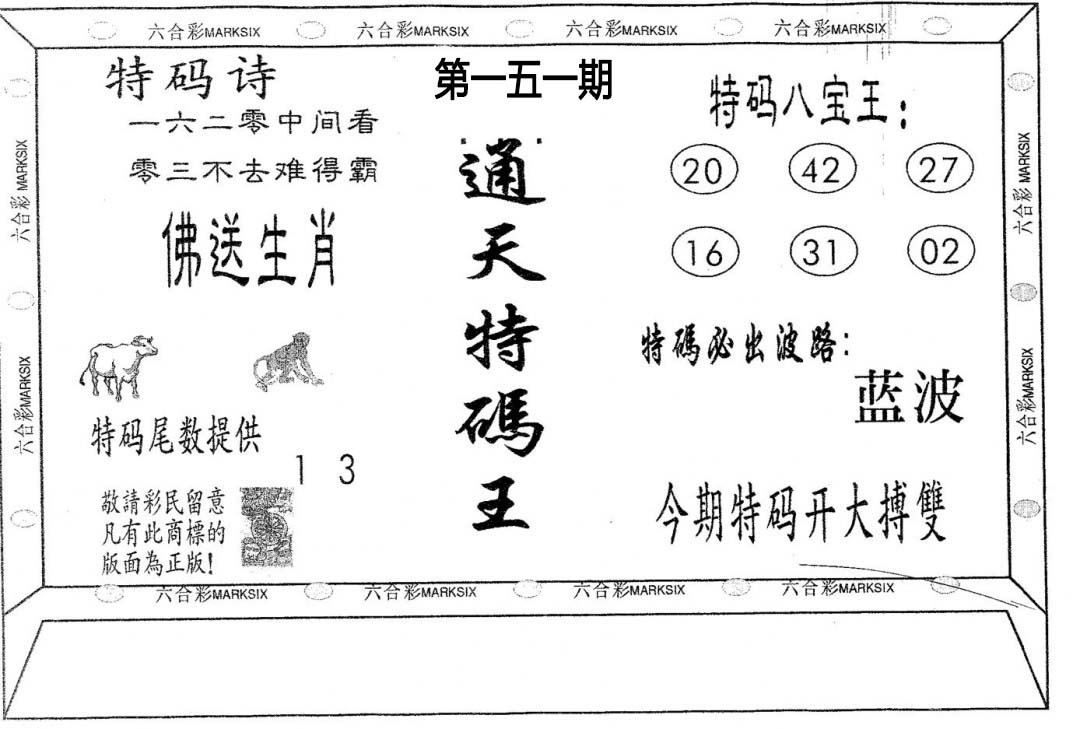 六合彩MARKSIX 六合彩MARKSIX 六合彩MARKSIX 六合彩MARKSIX
六合彩 MARKSIX
六合彩MARKSIX
特码诗
一六二零中间看
零三不去难得霸
佛送生肖
特码尾数提供
1 3
敬請彩民留意
凡有此商標的
版面為正版!
第一五一期
通天特碼王
特码八宝王:
20 42 27
16 31 02
特碼必出波路:
蓝波
今期特码开大搏雙
六合彩 MARKSIX
六合彩MARKSIX
六合彩MARKSIX 六合彩MARKSIX 六合彩MARKSIX 六合彩MARKSIX